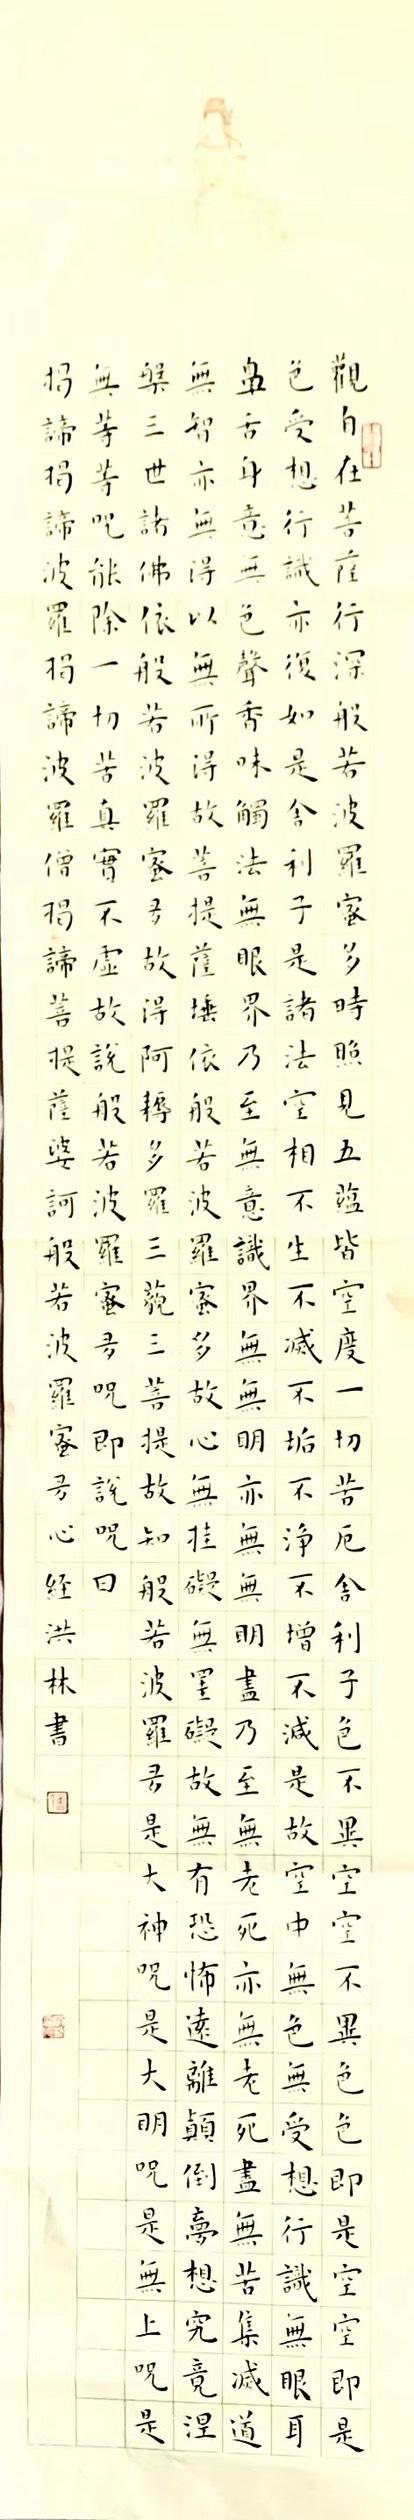 觀自在菩薩行深般若波羅蜜多時照見五蘊皆空度一切苦厄舍利子色不異空空不異色色即是空空即是
色受想行識亦復如是舍利子是諸法空相不生不滅不垢不淨不增不減是故空中無色無受想行識無眼耳
鼻舌身意無色聲香味觸法無眼界乃至無意識界無無明亦無無明盡乃至無老死亦無老死盡無苦集滅道
無智亦無得以無所得故菩提薩埵依般若波羅蜜多故心無挂礙無罣礙故無有恐怖遠離顛倒夢想究竟涅
槃三世諸佛依般若波羅蜜多故得阿耨多羅三藐三菩提故知般若波羅多是大神咒是大明咒是無上咒是
無等等咒能除一切苦真實不虛故說般若波羅蜜多咒即說咒曰
揭諦揭諦波羅揭諦波羅僧揭諦菩提薩婆訶般若波羅蜜多心經洪林書